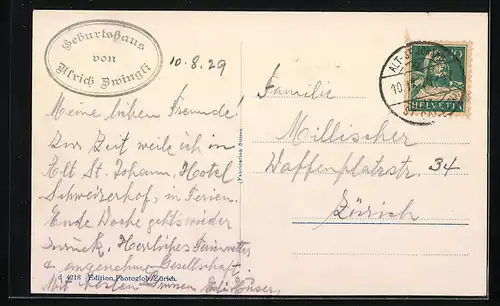 Geburtshaus
von
Ulrich Zwingli
10.8.29
Meine lieben Freunde!
Zur Zeit weile ich in
Alt St. Johann, Hotel
Schweizerhof, in Ferien.
Ende Woche geht's wieder
zurück. Herrliches Ferienwetter
& angenehme Gesellschaft.
Mit besten Grüssen
d 4218 Edition Photoglob, Zürich.
Familie
Millischer
Waffenplatzstr. 34
Zürich
10
HELVETIA
ALT-S
10.